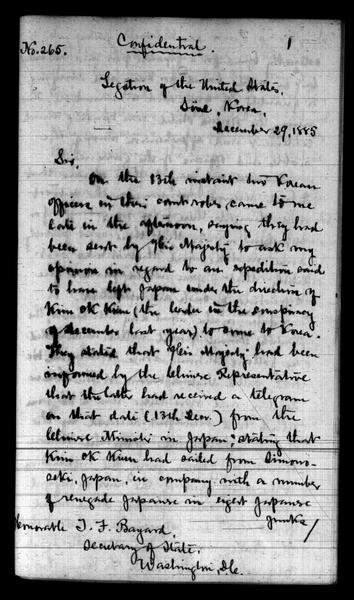 Confidential. 1
No. 265.
Legation of the United States,
Söul, Korea,
December 29, 1885
Sir,
On the 13th instant two Korean
officers in their court robes, came to me
late in the afternoon, saying they had
been sent by His Majesty to ask my
opinion in regard to an expedition said
to have left Japan under the direction of
Kim Ok Kiun (the leader in the conspiracy
of December last year) to come to Korea.
They stated that His Majesty had been
informed by the Chinese Representative
that the latter had received a telegram
on that date (13th Dec.) from the
Chinese Minister in Japan; stating that
Kim Ok Kiun had sailed from Simono-
seki, Japan, in company with a number
of renegade Japanese in eight Japanese
junks/
Honorable T. F. Bayard,
Secretary of State,
Washington, D.C.